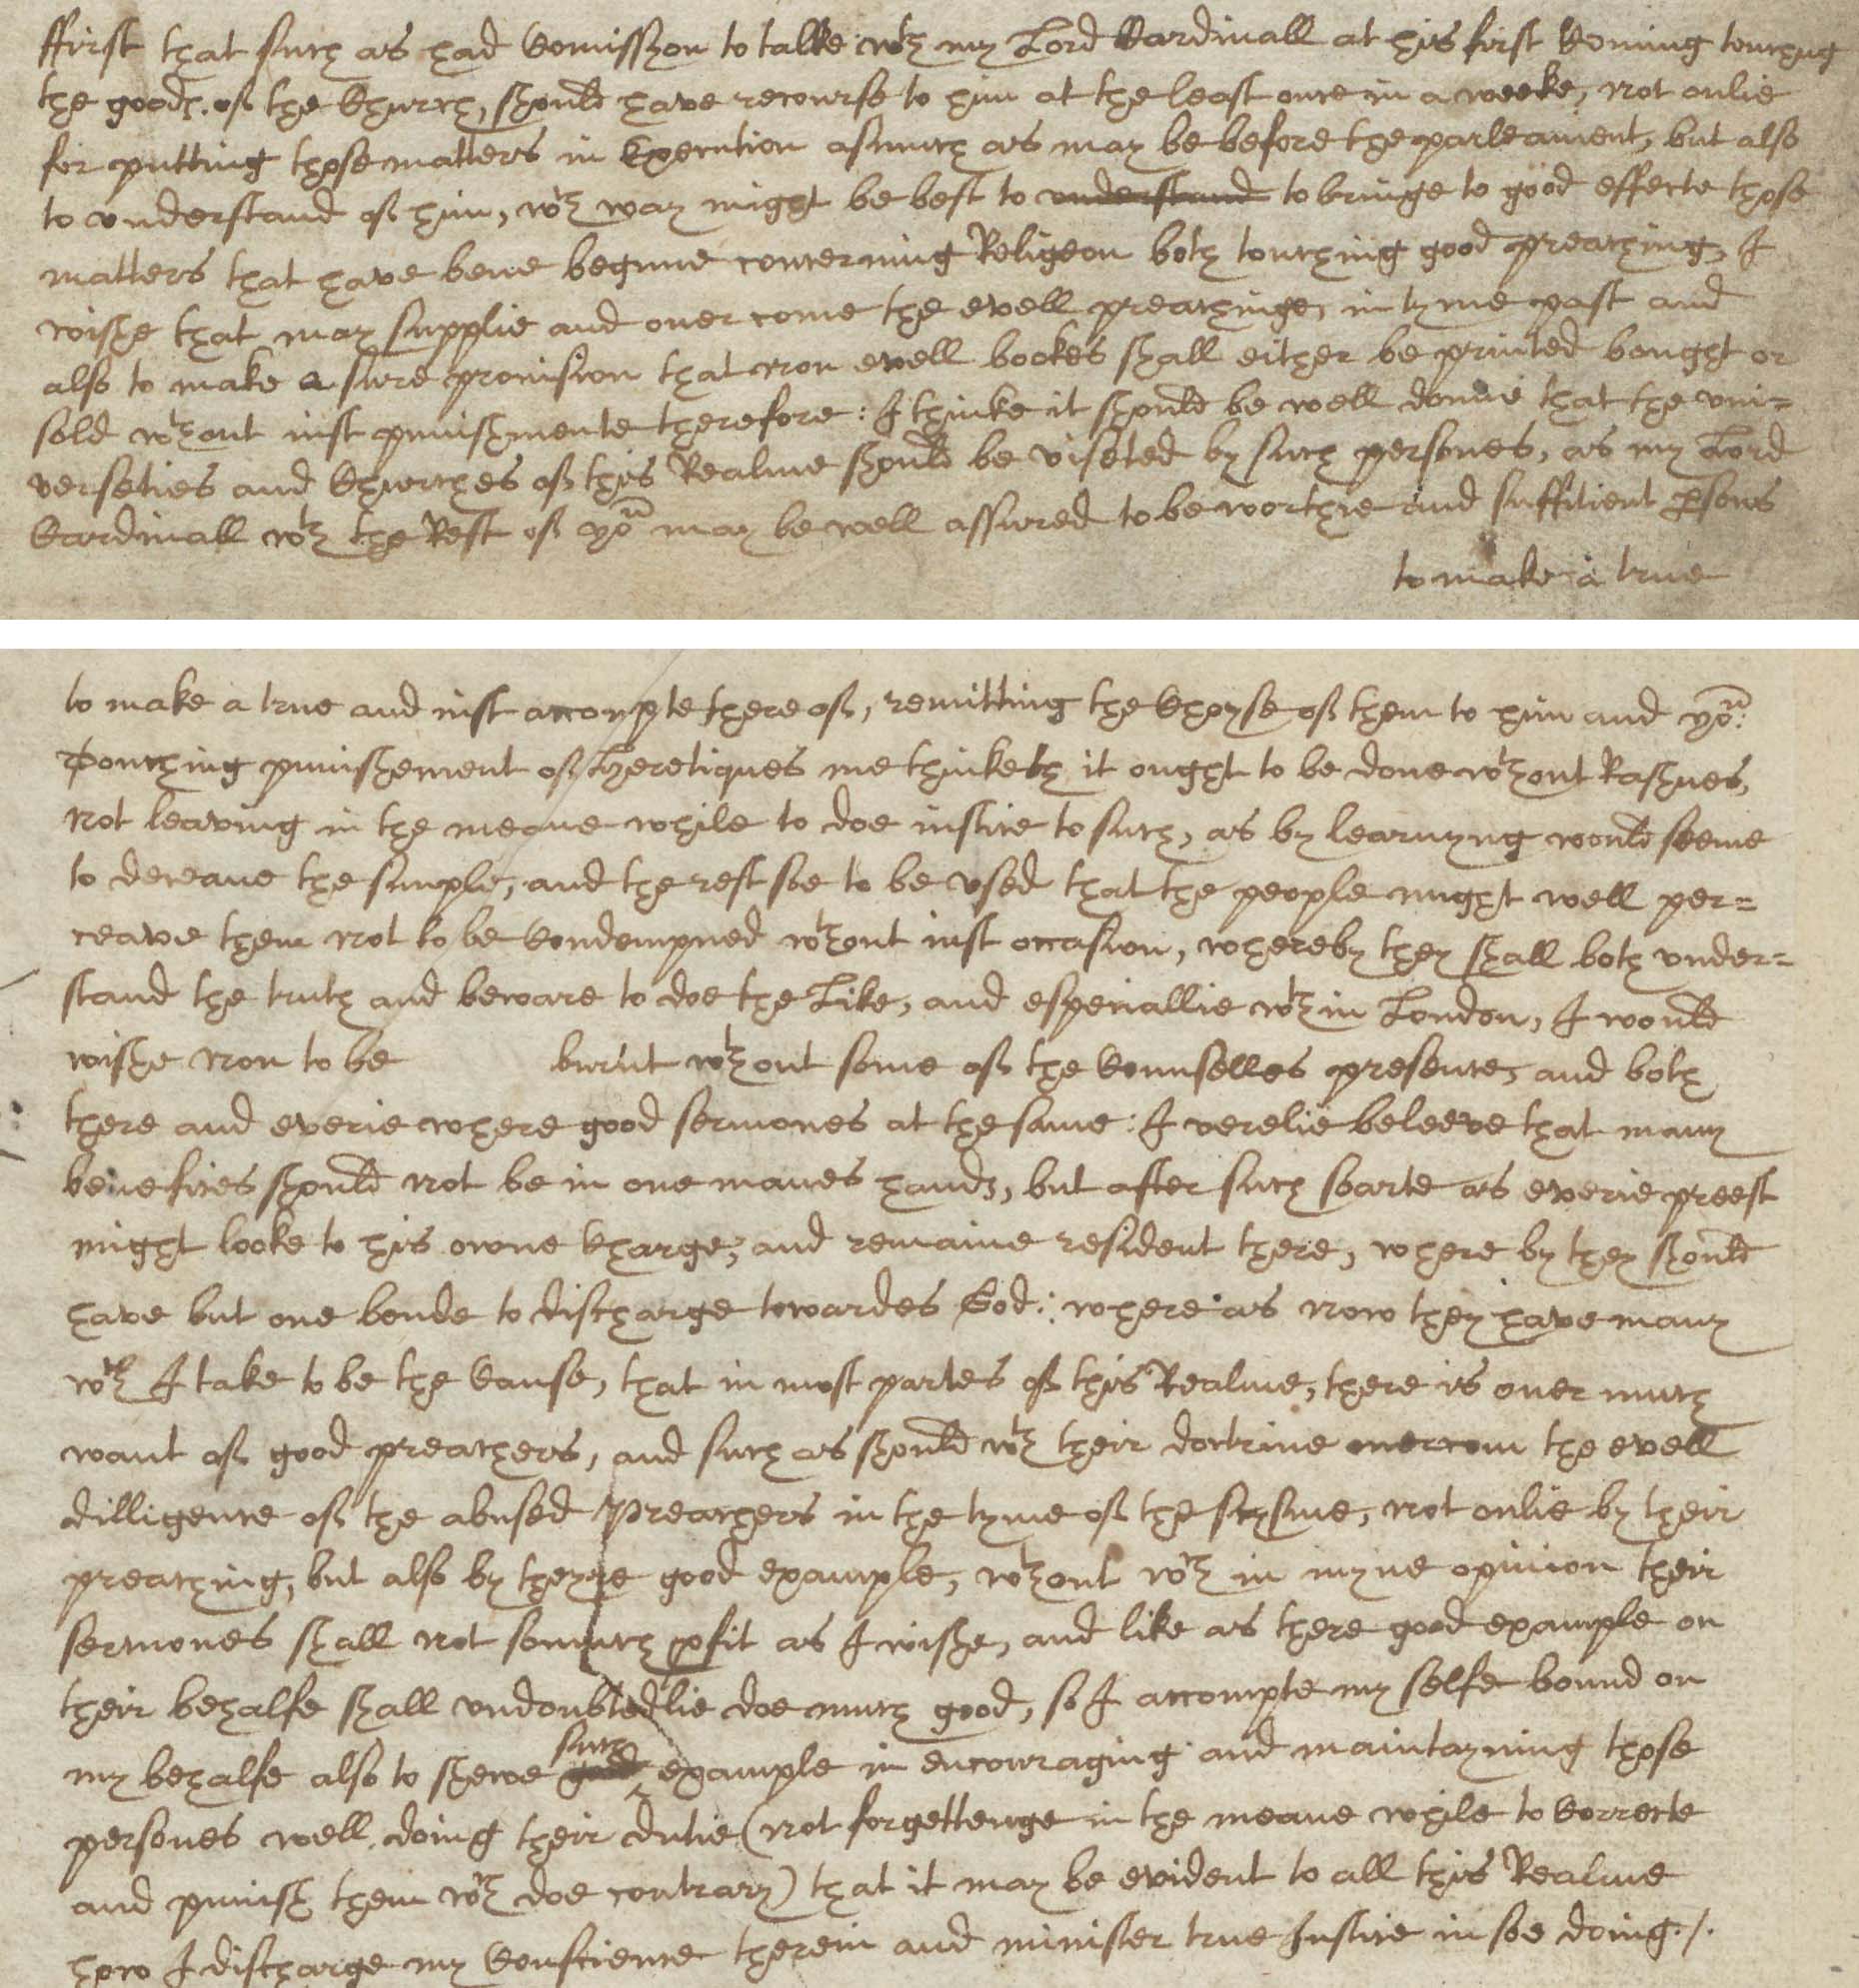 ffirst that such as had Comission to talke wth my Lord Cardinall at his first Coming touching
the goods of the Church, should have recourse to him at the least once in a weeke, not onlie
for putting those matters in Execution asmuch as may be before the parleament, but also
to understand of him, wch way might be best to understand to bringe to good effecte those
matters that have bene begune concerning Religeon both touching good preaching, I
wishe that may supplie and overcome the evell preachinge, in tyme past and
also to make a sure provision that non evell bookes shall either be printed bought or
sold wthout iust punishmente therefore: I thinke it should be well donne that the uni=
verseties and Churches of this Realme should be viseted by such persones, as my Lord
Cardinall wth the Rest of you may be well assured to be worthie and suffitient psons
to make a true
to make a true and iust accompte thereof, remitting the Choyse of them to him and you:
Touching punishement of heretiques me thinketh it ought to be done wthout Rashnes,
not leaving in the meane while to doe iustice to such, as by learnyng would seeme
to deceave the simple, and the rest soe to be used that the people might well per=
ceave them not to be Condempned wthout iust occasion, whereby they shall both under=
stand the truth and beware to doe the Like, and especiallie wthin London, I would
wishe non to be burnt wthout some of the Counselles presence, and both
there and everie where good sermones at the same: I verelie beleeve that many
benefices should not be in one manes hands, but after such soarte as everie preest
might looke to his owne Charge, and remaine resident there, where by they should
have but one bonde to discharge towardes God: where as now they have many
wch I take to be the Cause, that in most partes of this Realme, there is over much
want of good preachers, and such as should wth their doctrine overcom the evell
dilligence of the abused Preachers in the tyme of the scysme, not onlie by their
preaching, but also by theyre good example, wthout wch in myne opinion their
sermones shall not somuch pfit as I wishe, and like as there good example on
their behalfe shall undoubtedlie doe much good, so I accompte my selfe bound on
my behalfe also to shewe good such example in encouraging and maintayning those
persones well doing their dutie (not forgettenge in the meane while to Correcte
and punish them wch doe contrary) that it may be evident to all this Realme
how I discharge my Conscience therein and minister true Iustice in soe doing./.